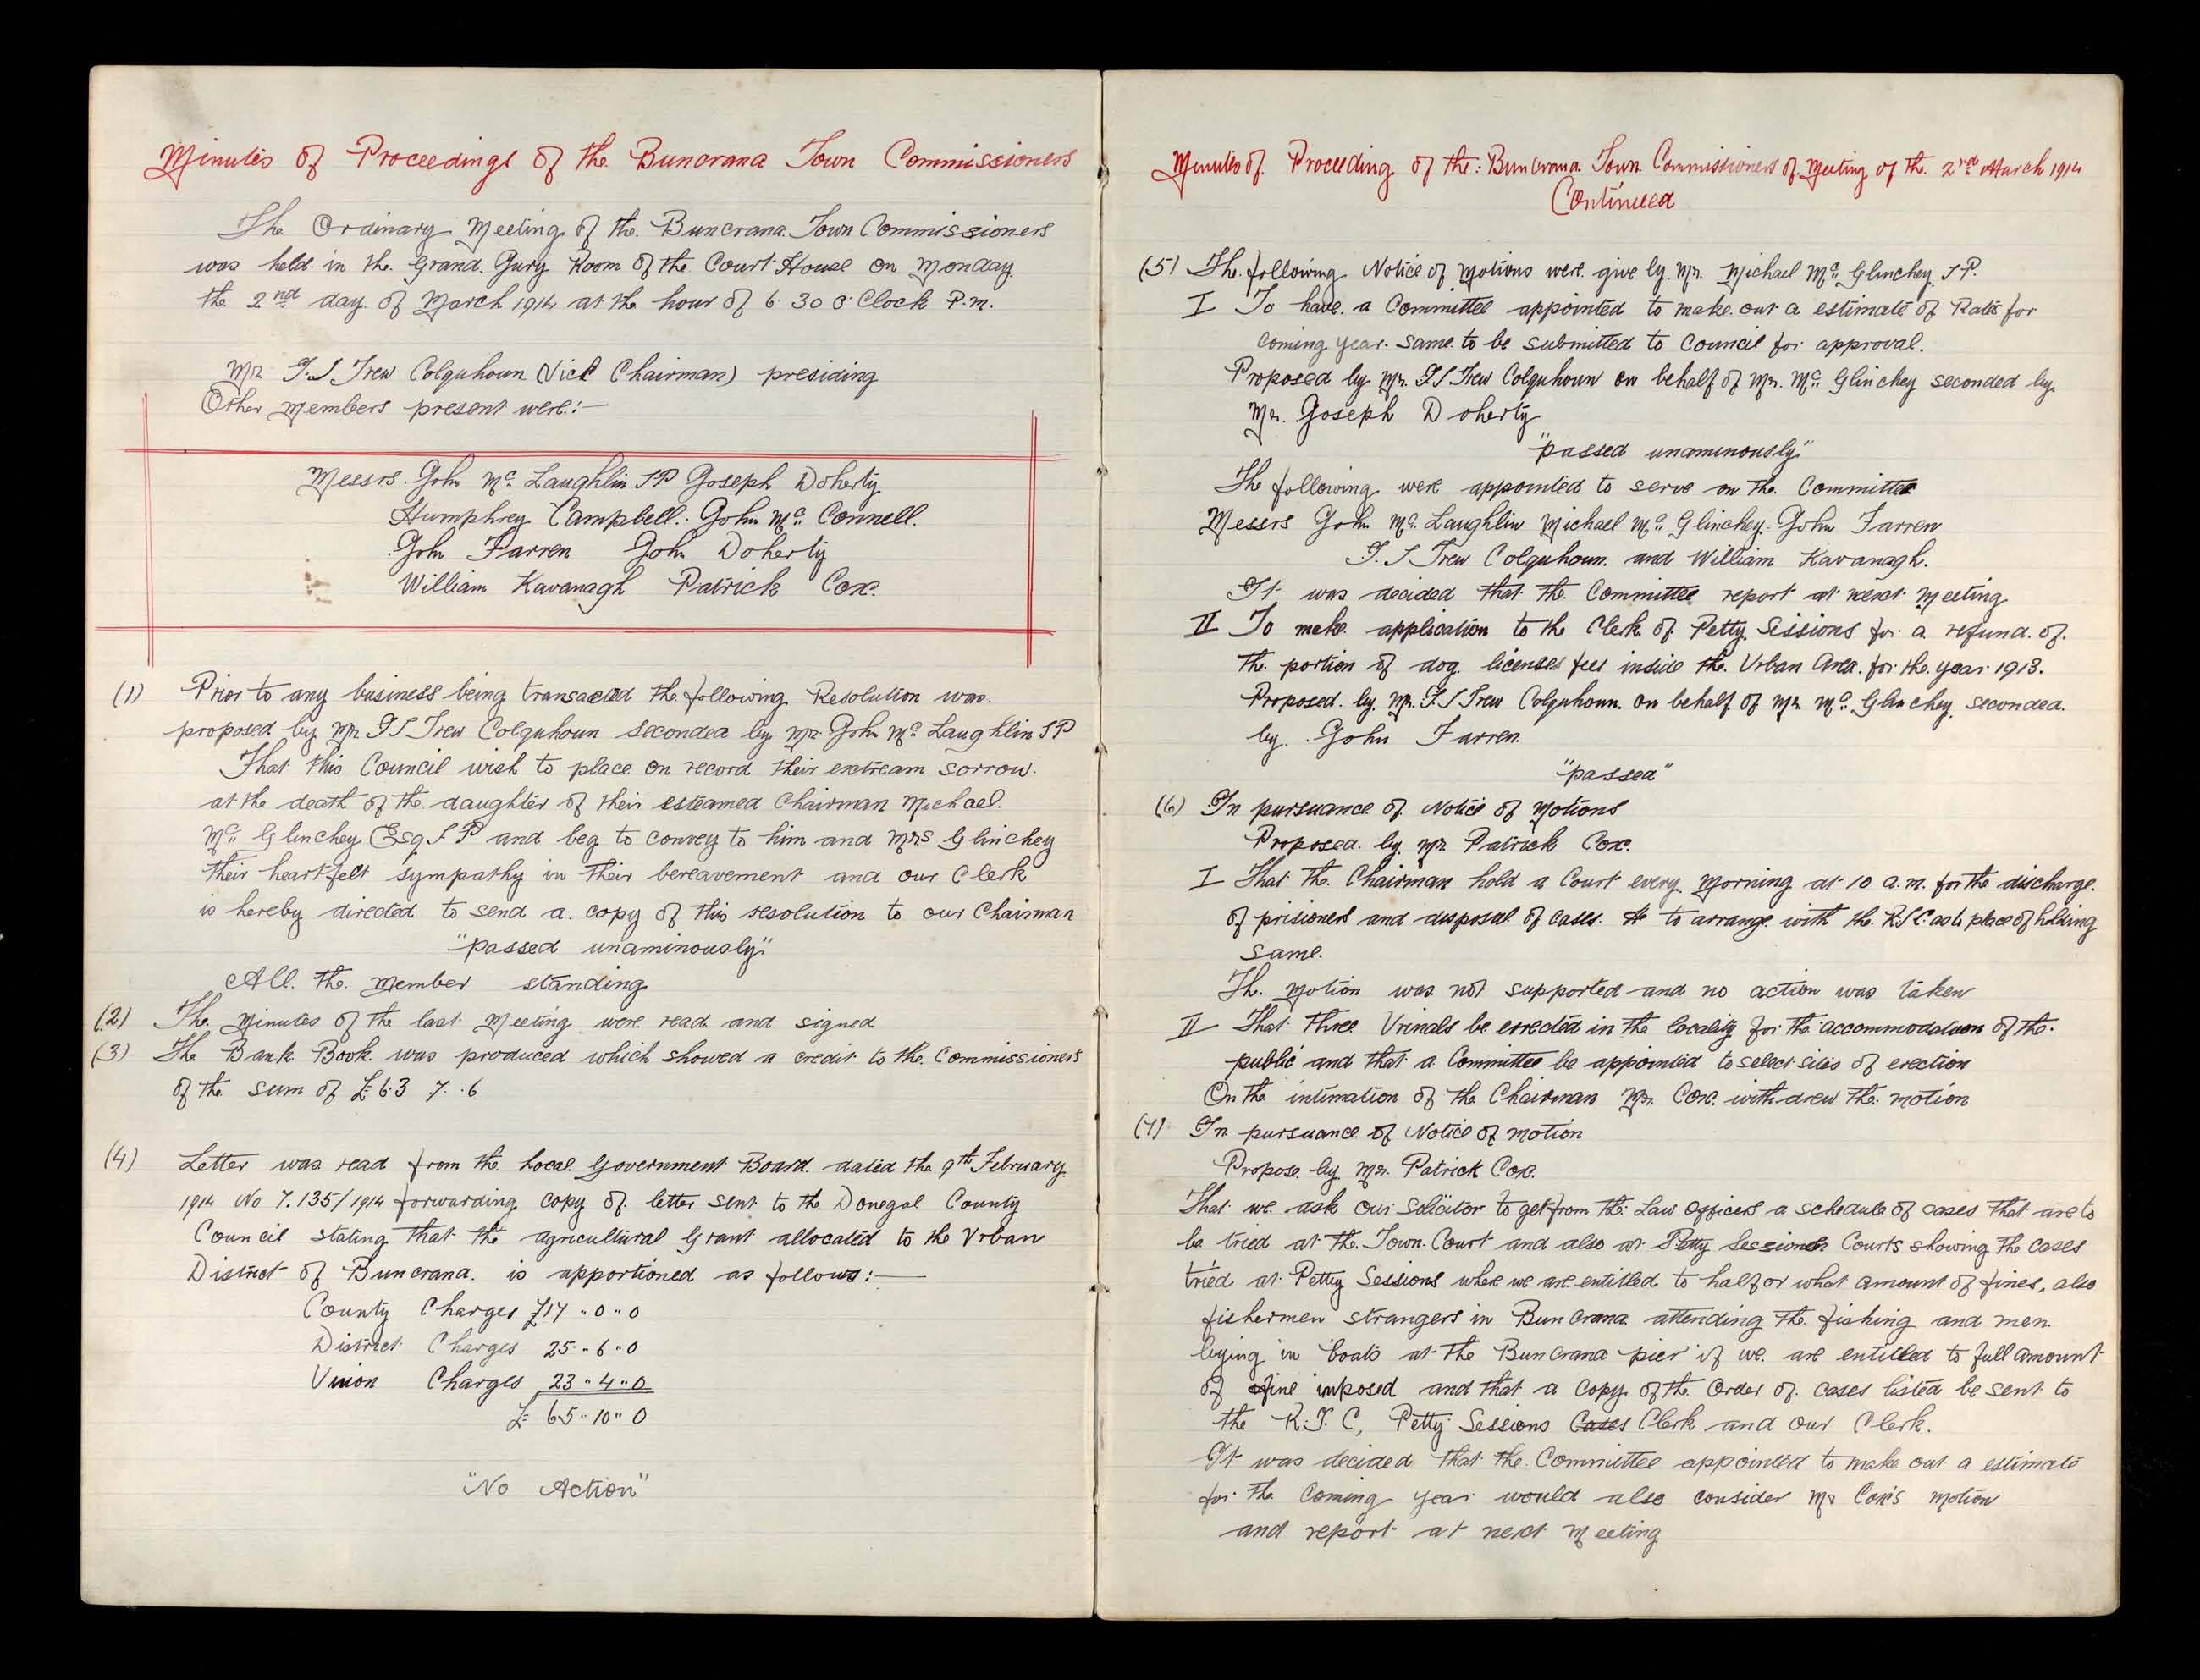 Minutes of Proceedings of the Buncrana Town Commissioners
The Ordinary Meeting of the Buncrana Town Commissioners
was held in the Grand Jury Room of the Court House on Monday
the 2nd day of March 1914 at the hour of 6.30 O'Clock P.m.
Mr T.S Trew Colquhoun (Vice Chairman) presiding
Other members present were:—
Messrs. John Mc Laughlin JP Joseph Doherty
Humphrey Campbell. John Mc Connell.
John Farren John Doherty
William Kavanagh Patrick Cox.
(1) Prior to any business being transacted the following Resolution was
proposed by Mr T S Trew Colquhoun seconded by Mr. John Mc Laughlin JP
That this Council wish to place on record their extream sorrow
at the death of the daughter of their esteamed Chairman Michael
Mc Glinchey Esq J P and beg to convey to him and Mrs Glinchey
their heartfelt sympathy in their bereavement and our Clerk
is hereby directed to send a copy of this resolution to our Chairman
"passed unaminously"
All the Member standing
(2) The Minutes of the last Meeting were read and signed
(3) The Bank Book was produced which showed a credit to the Commissioners
of the sum of £63 7..6
(4) Letter was read from the Local Government Board dated the 9th February
1914 No 7.135/1914 forwarding copy of letter sent to the Donegal County
Council stating that the agricultural Grant allocated to the Urban
District of Buncrana is apportioned as follows:—
County Charges £17 "0"0
District Charges 25"6"0
Union Charges 23"4"0
£ 65"10"0
"No Action"
Minutes of Proceeding of the: Buncrana Town Commissioners of Meeting of the 2nd March 1914
Continued
(5) The following Notice of Motions were give by Mr. Michael Mc Glinchey JP.
I To have a Committee appointed to make out a estimate of Rates for
coming year. same to be submitted to Council for approval.
Proposed by Mr. T S Trew Colquhoun on behalf of Mr. Mc Glinchey seconded by
Mr. Joseph Doherty
"passed unaminously"
The following were appointed to serve on the Committee
Messrs John Mc Laughlin Michael Mc Glinchey John Farren
T. S Trew Colquhoun and William Kavanagh.
It was decided that the Committee report at next Meeting
II To make application to the Clerk of Petty Sessions for a refund of
the portion of dog licenses fees inside the Urban Area for the year 1913.
Proposed by Mr. T S Trew Colquhoun on behalf of Mr Mc Glinchey seconded
by John Farren
"passed"
(6) In pursuance of Notice of Motions
Proposed by Mr Patrick Cox.
I That the Chairman hold a Court every Morning at 10 a.m. for the discharge
of prisioners and disposal of cases. to arrange with the R.I.C. as to place of holding
same.
The Motion was not supported and no action was taken
II That three Urinals be errected in the locality for the accommodation of the
public and that a Committee be appointed to select sites of erection
On the intimation of the Chairman Mr. Cox withdrew the motion
(7) In pursuance of Notice of motion
Propose by Mr. Patrick Cox.
That we ask our Solicitor to get from the Law Officers a schedule of cases that are to
be tried at the Town Court and also at Petty Sessions Courts showing the cases
tried at Petty Sessions where we are entitled to half or what amount of fines, also
fishermen strangers in Buncrana attending the fishing and men
lying in boats at the Buncrana pier if we are entitled to full amount
of fine imposed and that a copy of the Order of cases listed be sent to
the R.I.C, Petty Sessions Cases Clerk and our Clerk.
It was decided that the Committee appointed to make out a estimate
for the coming year would also consider Mr Cox's motion
and report at next Meeting